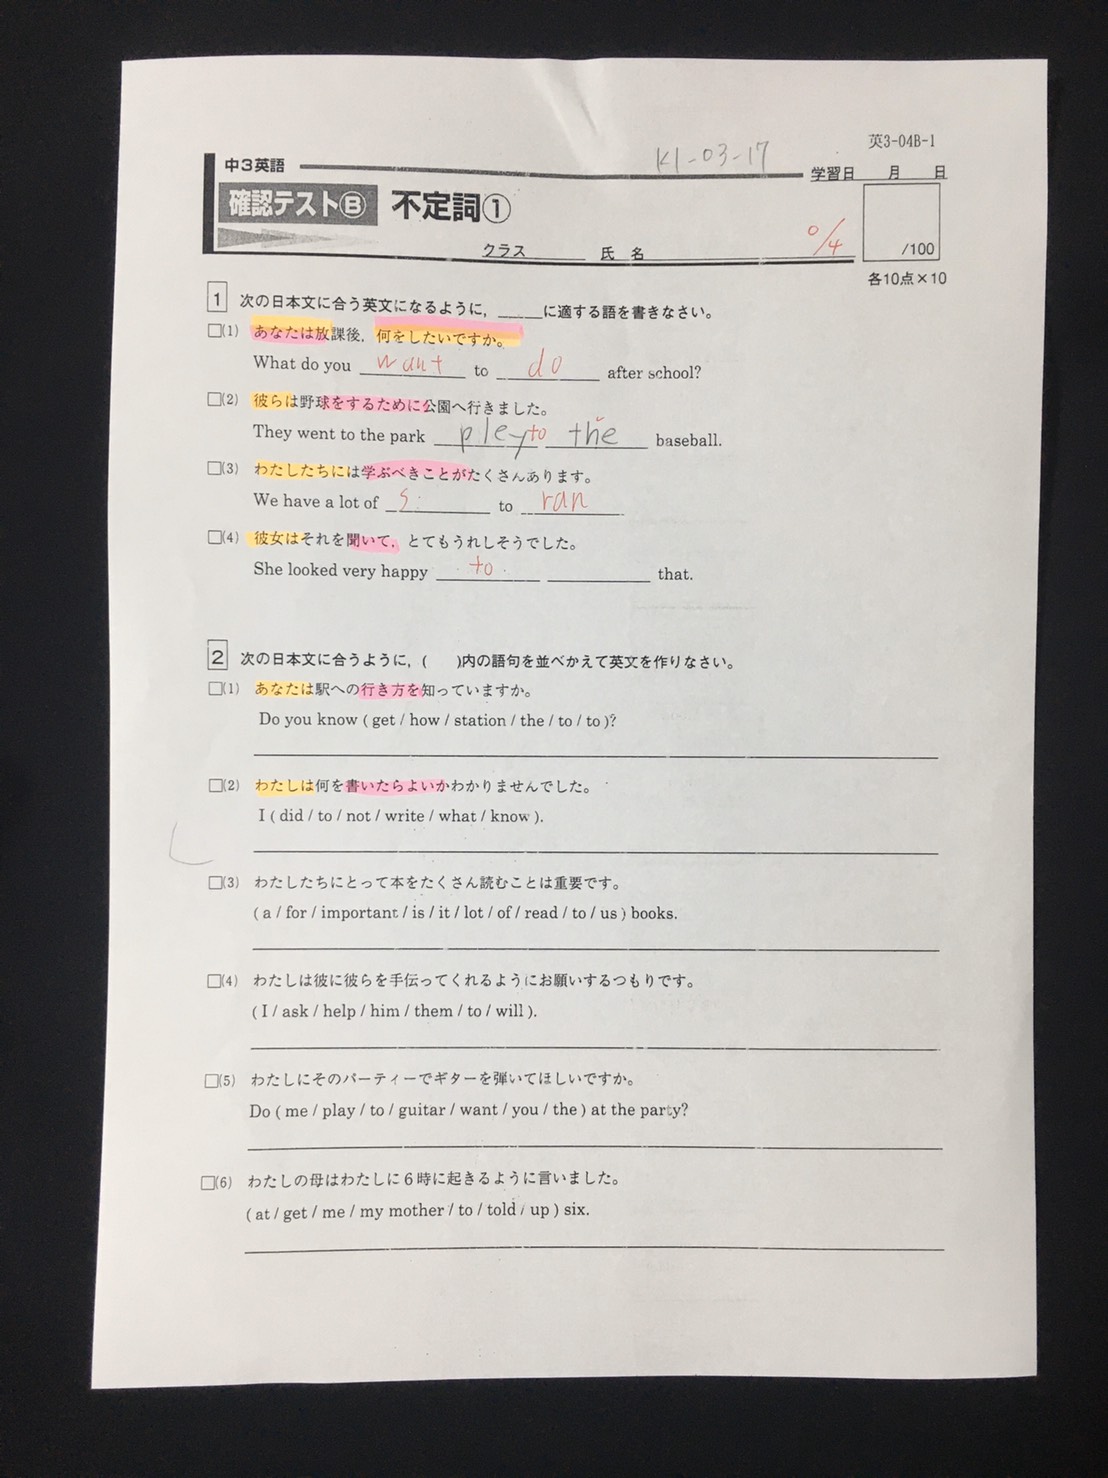 英3-04B-1
K1-03-17
中3英語
学習日 月 日
確認テストⒷ 不定詞①
クラス 氏名 0/4
/100
各10点×10
1 次の日本文に合う英文になるように，____に適する語を書きなさい。
□(1) あなたは放課後，何をしたいですか。
What do you want to do after school?
□(2) 彼らは野球をするために公園へ行きました。
They went to the park pley to the baseball.
□(3) わたしたちには学ぶべきことがたくさんあります。
We have a lot of s to ran
□(4) 彼女はそれを聞いて，とてもうれしそうでした。
She looked very happy to ____ that.
2 次の日本文に合うように，( )内の語句を並べかえて英文を作りなさい。
□(1) あなたは駅への行き方を知っていますか。
Do you know ( get / how / station / the / to / to )?
□(2) わたしは何を書いたらよいかわかりませんでした。
I ( did / to / not / write / what / know ).
□(3) わたしたちにとって本をたくさん読むことは重要です。
( a / for / important / is / it / lot / of / read / to / us ) books.
□(4) わたしは彼に彼らを手伝ってくれるようにお願いするつもりです。
( I / ask / help / him / them / to / will ).
□(5) わたしにそのパーティーでギターを弾いてほしいですか。
Do ( me / play / to / guitar / want / you / the ) at the party?
□(6) わたしの母はわたしに6時に起きるように言いました。
( at / get / me / my mother / to / told / up ) six.